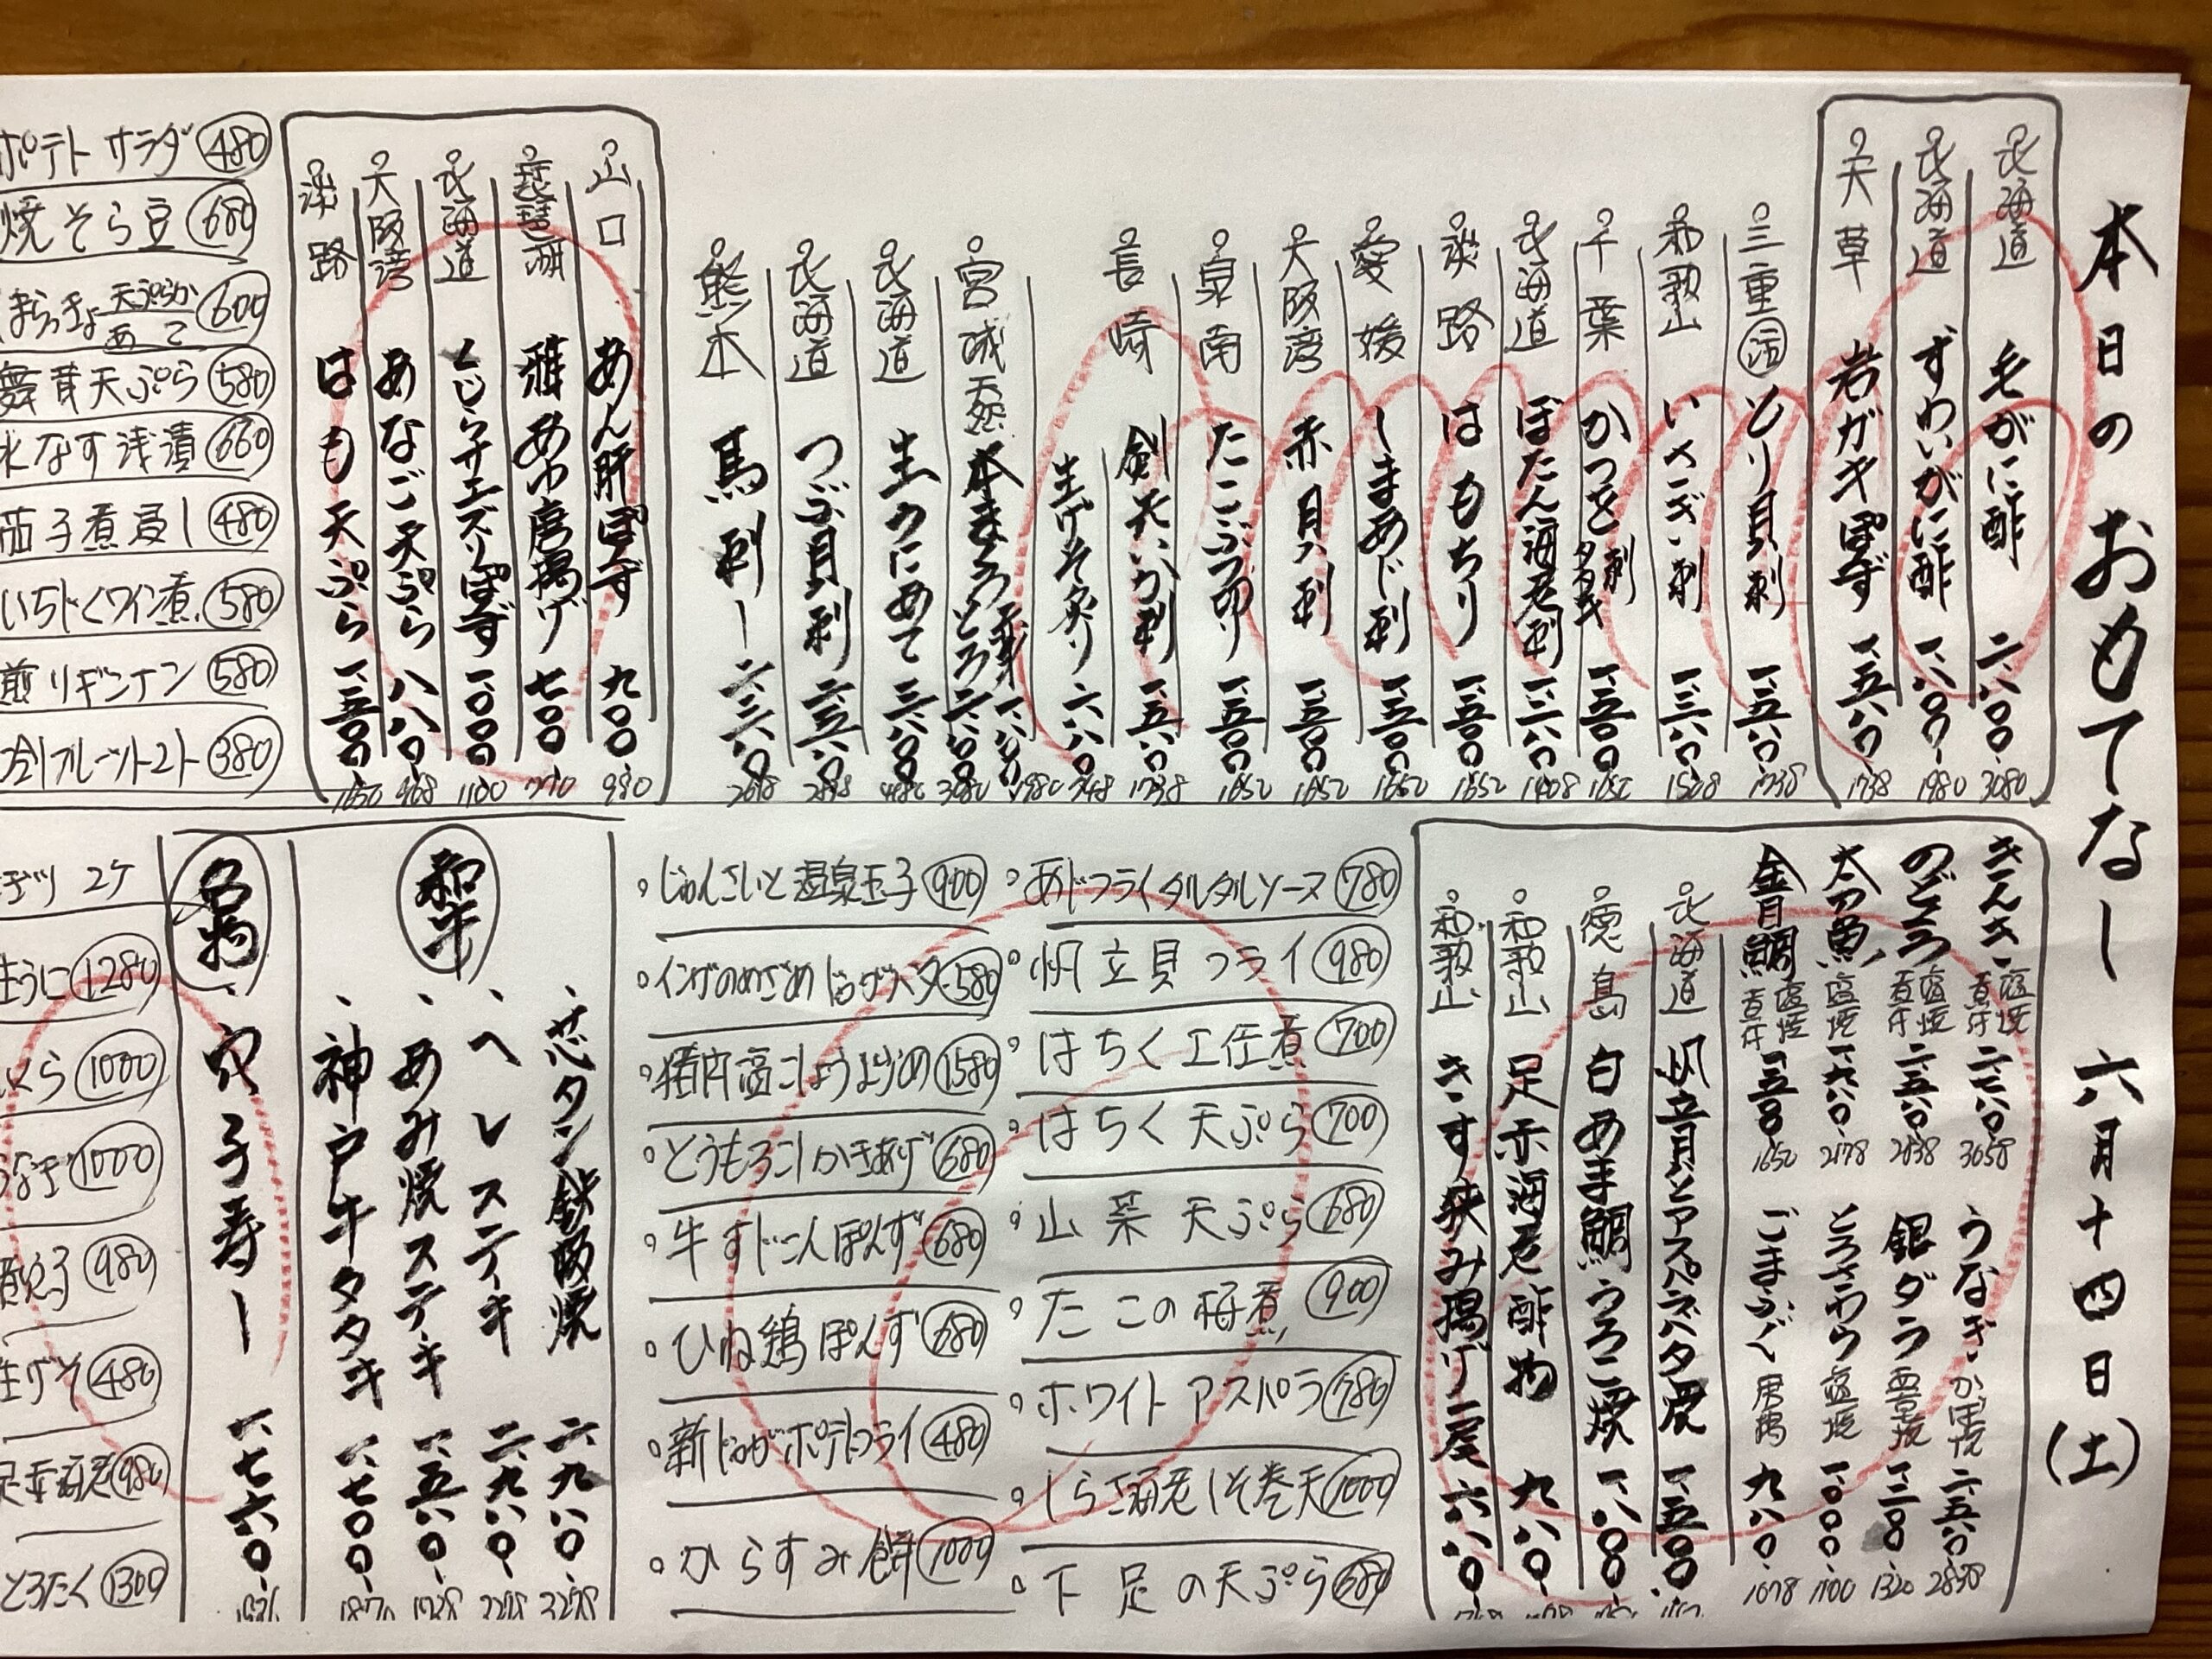 本日のおもてなし 六月十四日(土)
北海道 毛がに酢 二、八00、 3080
北海道 ずわいがに酢 一、八00、 1980
天草 岩ガキぽず 一、五八0、 1738
三重 活 とり貝刺 一、五八0、 1738
和歌山 いさぎ刺 一、三八0、 1508
千葉 かつを刺 タタキ 一、五00、 1650
北海道 ぼたん海老刺 一、二八0、 1408
淡路 はもちり 一、五00、 1650
愛媛 しまあじ刺 一、五00、 1650
大阪湾 赤貝刺 一、五00、 1650
泉南 たこぶつ切り 一、五00、 1650
長崎 剣先いか刺 一、五八0、 1738
生げそ炙り 六八0、 748
宮城 天然本まぐろ 赤身 一、八00、 1980
とろ 二、八00、 3080
北海道 生うにあて 三、八00、
北海道 つぶ貝刺 二、五八0、
熊本 馬刺し 二、三八0、
山口 あん肝ぽず 九00、 990
琵琶湖 稚あゆ唐揚げ 七00、 770
北海道 くじらサエズリぽず 一、000、 1100
大阪湾 あなご天ぷら 八八0、 968
淡路 はも天ぷら 一、五00、 1650
ポテトサラダ 480
焼そら豆 680
天ぷらか あて 600
舞茸天ぷら 580
水なす浅漬 660
茄子煮浸し 480
いちじくワイン煮 580
煎りギンナン 580
冷しフルーツトマト 380
きんき 塩焼 煮付 二、七八0、 3058
のどぐろ 塩焼 煮付 二、五八0、 2838
太刀魚 塩焼 2178
金目鯛 塩焼 煮付 一、五00 1650
うなぎ かば焼 二、五八0、 2838
銀ダラ 西京焼 一、二00、 1320
とろさわら 塩焼 一、000、 1100
ごまふぐ 唐揚 九八0、 1078
北海道 帆立貝とアスパラバタ焼 一、五00、
徳島 白あま鯛うろこ焼 一、八00、
和歌山 足赤海老酢物 九八0、
和歌山 きす挟み揚げ二尾 六八0、
あじフライタルタルソース 780
帆立貝フライ 980
はちく土佐煮 700
はちく天ぷら 700
山菜天ぷら 680
たこの梅煮 900
ホワイトアスパラ 780
しらさ海老しそ巻天 1000
下足の天ぷら 680
じゅんさいと温泉玉子 900
インカのめざめじゃがバタ 580
猪肉塩こしょう 1580
とうもろこしかきあげ 680
牛すじこんぽんず 680
ひね鶏ぽんず 680
新じゃがポテトフライ 480
からすみ餅 1000
和牛
、芯タン鉄板焼 二、九八0、
、ヘレステーキ 二、九八0、
、あみ焼ステーキ 一、五八0、
、神戸牛タタキ 一、七00、
名物
、穴子寿し 一、七六0、
2ケ
生うに 1280
いくら 1000
うなぎ 1000
煮穴子 980
生げそ 480
足赤海老 980
とろたく 1300